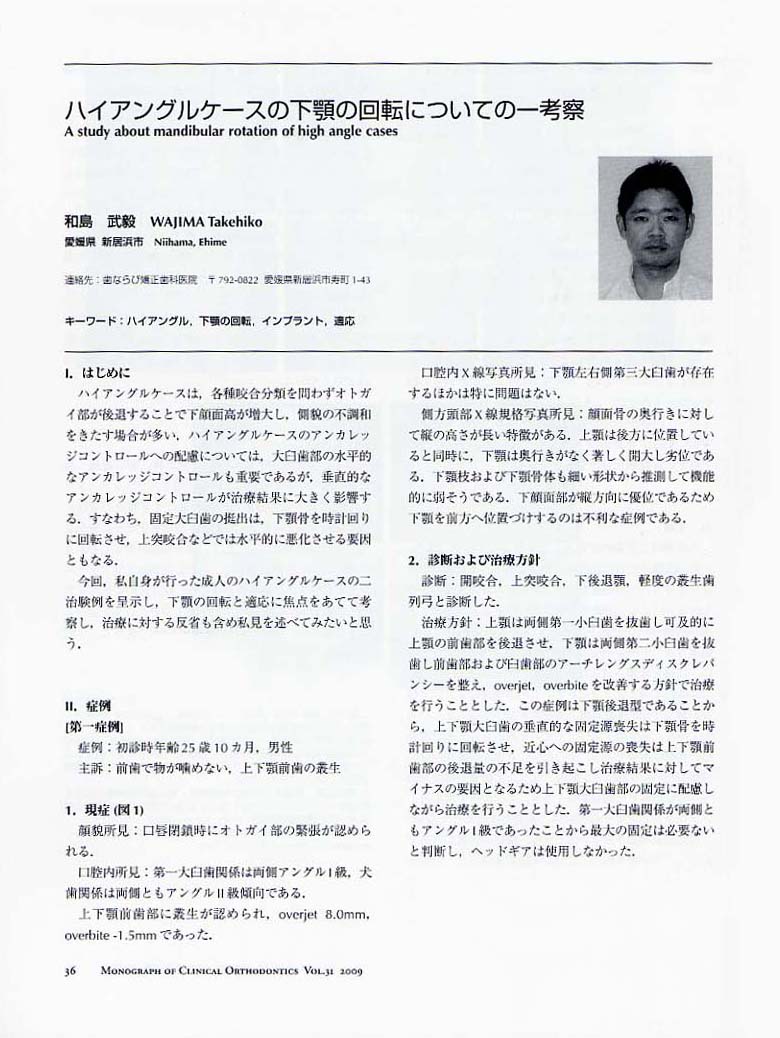 ハイアングルケースの下顎の回転についての一考察
A study about mandibular rotation of high angle cases
和島　武毅　WAJIMA Takehiko
愛媛県 新居浜市　Niihama, Ehime
連絡先：歯ならび矯正歯科医院　〒792-0822 愛媛県新居浜市寿町1-43
キーワード：ハイアングル，下顎の回転，インプラント，適応
I．はじめに
ハイアングルケースは，各種咬合分類を問わずオトガ
イ部が後退することで下顔面高が増大し，側貌の不調和
をきたす場合が多い．ハイアングルケースのアンカレッ
ジコントロールへの配慮については，大臼歯部の水平的
なアンカレッジコントロールも重要であるが，垂直的な
アンカレッジコントロールが治療結果に大きく影響す
る．すなわち，固定大臼歯の挺出は，下顎骨を時計回り
に回転させ，上突咬合などでは水平的に悪化させる要因
ともなる．
今回，私自身が行った成人のハイアングルケースの二
治験例を呈示し，下顎の回転と適応に焦点をあてて考
察し，治療に対する反省も含め私見を述べてみたいと思
う．
II．症例
[第一症例]
症例：初診時年齢25歳10カ月，男性
主訴：前歯で物が噛めない，上下顎前歯の叢生
1．現症 (図1)
顔貌所見：口唇閉鎖時にオトガイ部の緊張が認めら
れる．
口腔内所見：第一大臼歯関係は両側アングルI級，犬
歯関係は両側ともアングルII級傾向である．
上下顎前歯部に叢生が認められ，overjet 8.0mm，
overbite -1.5mmであった．
口腔内X線写真所見：下顎左右側第三大臼歯が存在
するほかは特に問題はない．
側方頭部X線規格写真所見：顔面骨の奥行きに対し
て縦の高さが長い特徴がある．上顎は後方に位置してい
ると同時に，下顎は奥行きがなく著しく開大し劣位であ
る．下顎枝および下顎骨体も細い形状から推測して機能
的に弱そうである．下顔面部が縦方向に優位であるため
下顎を前方へ位置づけするのは不利な症例である．
2．診断および治療方針
診断：開咬合，上突咬合，下後退顎，軽度の叢生歯
列弓と診断した．
治療方針：上顎は両側第一小臼歯を抜歯し可及的に
上顎の前歯部を後退させ，下顎は両側第二小臼歯を抜
歯し前歯部および臼歯部のアーチレングスディスクレパ
ンシーを整え，overjet，overbiteを改善する方針で治療
を行うこととした．この症例は下顎後退型であることか
ら，上下顎大臼歯の垂直的な固定源喪失は下顎骨を時
計回りに回転させ，近心への固定源の喪失は上下顎前
歯部の後退量の不足を引き起こし治療結果に対してマ
イナスの要因となるため上下顎大臼歯部の固定に配慮し
ながら治療を行うこととした．第一大臼歯関係が両側と
もアングルI級であったことから最大の固定は必要ない
と判断し，ヘッドギアは使用しなかった．
36　MONOGRAPH OF CLINICAL ORTHODONTICS VOL.31 2009